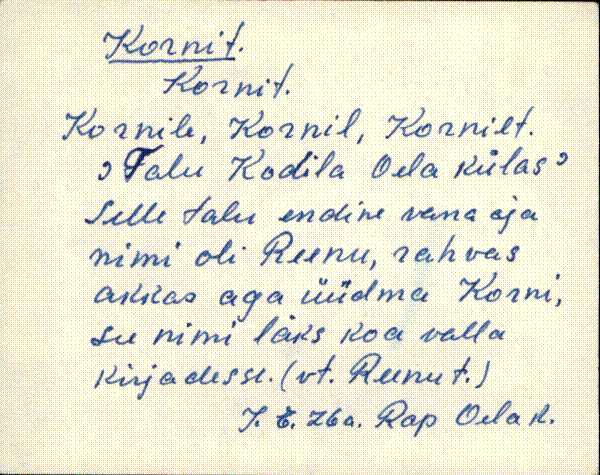 Kornit.
Kornit.
Kornile, Kornil, Kornilt.
, Talu Kodila Oela külas,
Selle talu endine vana aja
nimi oli Reenu, rahvas
akkas aga üüdma Korni,
see nimi läks koa valla
kirjadesse. (vt. Reenut.)
26a. Rap Oela k.